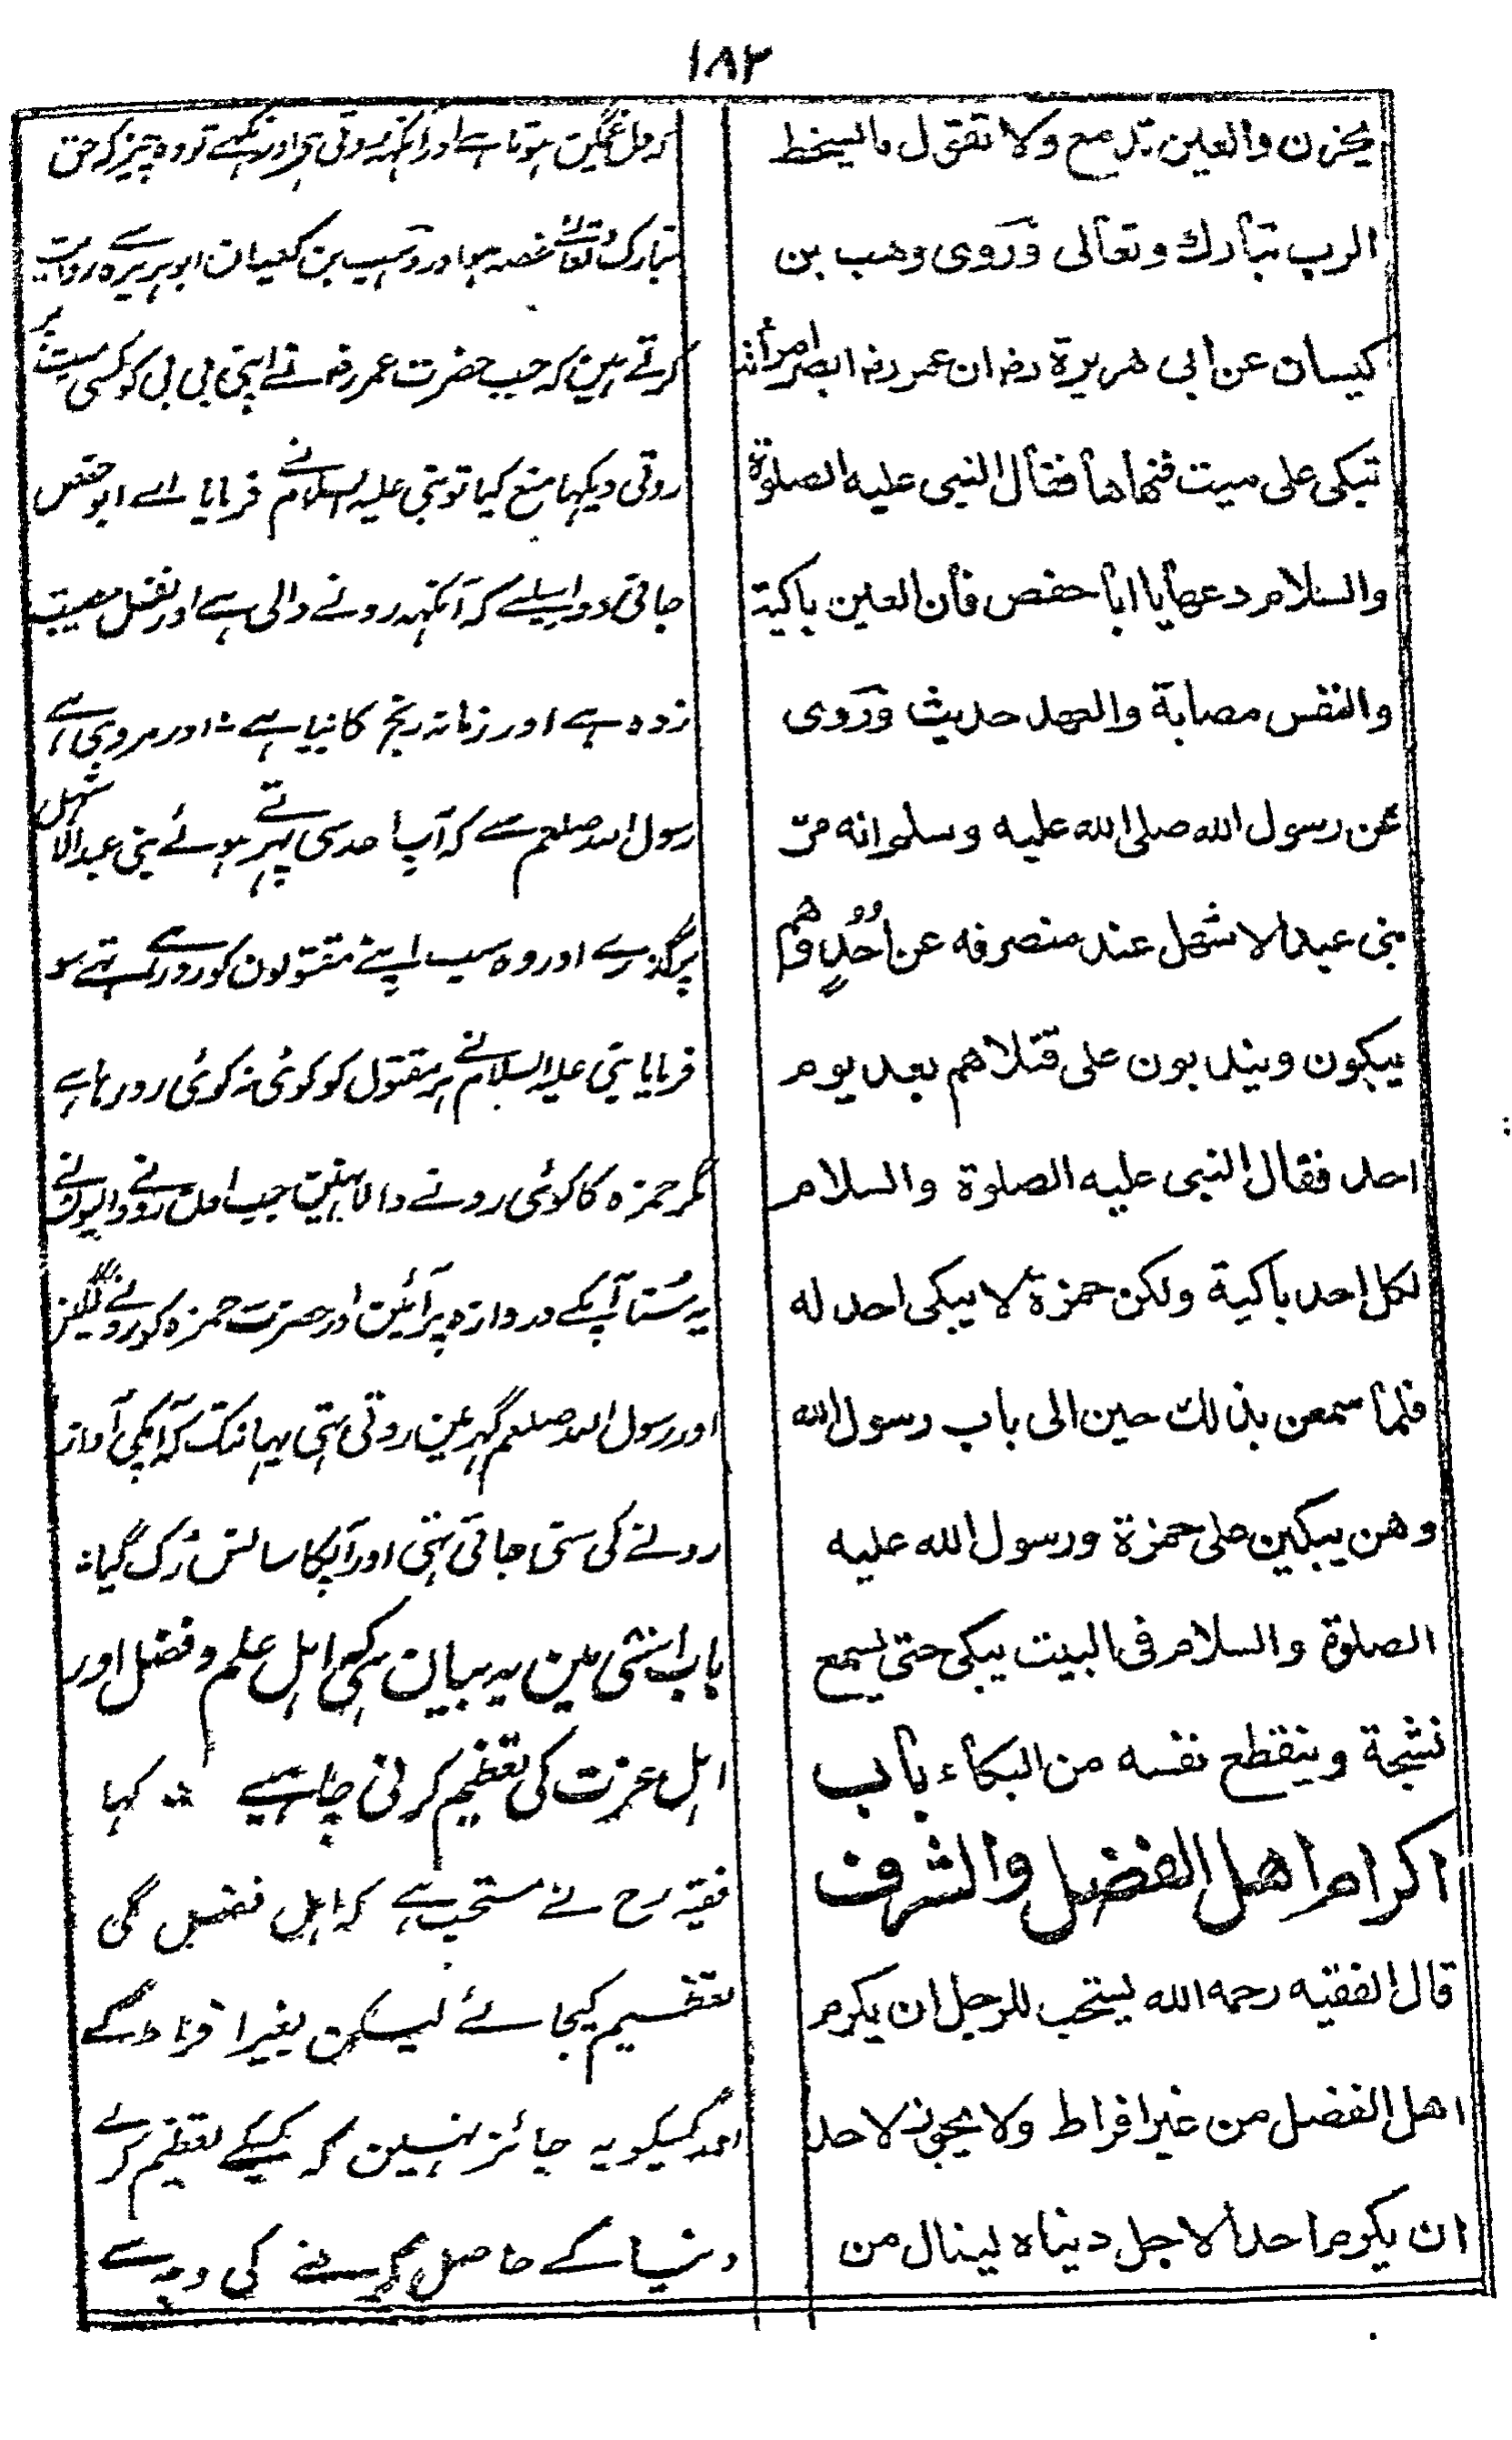 ١٨٢
يحزن والعين تدمع ولا نقول ما يسخط
الرب تبارك وتعالى وروى وهب بن
كيسان عن ابى هريرة رضـ ان عمر رضـ ابصر امرأة
تبكى على ميت فنهاها فقال النبى عليه الصلوة
والسلام دعها يا ابا حفص فان العين باكية
والنفس مصابة والعهد حديث وروى
عن رسول الله صلى الله عليه وسلم انه مرّ
بنى عبد الاشهل عند منصرفه عن اُحُدٍ وهم
يبكون ويندبون على قتلاهم بعد يوم
احد فقال النبى عليه الصلوة والسلام
لكل احد باكية ولكن حمزة لا يبكى احد له
فلما سمعن بذلك جين الى باب رسول الله
وهن يبكين على حمزة ورسول الله عليه
الصلوة والسلام فى البيت يبكى حتى يسمع
نشجة وينقطع نفسه من البكاء باب
اكرام اهل الفضل والشرف
قال الفقيه رحمه الله يستحب للرجل ان يكرم
اهل الفضل من غير افراط ولا يجوز لاحد
ان يكرم احدا لاجل دنياه لينال من
دل غمگین ہوتا ہے اور آنکہہ روتی ہی اور نکہے تو وہ چیز کہ حق
تبارک وتعالے غصہ ہو اور وہیب بن کیسان ابو ہریرہ سے روایت
کرتے ہین کہ جب حضرت عمر رضہ نے اپنی بی بی کو کسی میت پر
روتی دیکہا منع کیا تو نبی علیہ السلام نے فرمایا اے ابو حفص
جانی دو اسیلے کہ آنکہہ رونے والی ہے اور نفس مصیبت
زدہ ہے اور زمانہ رنج کا نیا ہے ؞ اور مروی ہے
رسول اللہ صلعم سے کہ آپ احد سی پہرتے ہوئے بنی عبد الاشہل
پر گذرے اور وہ سب اپنے مقتولون کو رو رہے تہے سو
فرمایا نبی علیہ السلام نے ہر مقتول کو کوئی نہ کوئی رو رہا ہے
مگر حمزہ کا کوئی رونے والا نہین جب ان رونے والیون نے
یہ سُنا آپکے دروازہ پر آئین اور حضرت حمزہ کو رونے لگین
اور رسول اللہ صلعم گہر مین روتی تہی یہانتک کہ آپکی آواز
رونے کی سنی جاتی تہی اور آپکا سانس رُک گیا ؞
باب اسّی مین یہ بیان ہی کہ اہل علم و فضل اور
اہل عزت کی تعظیم کرنی چاہیے ؞ کہا
فقیہ رح نے مستحب ہے کہ اہل فضل کی
تعظیم کیجائے لیکن بغیر افراط کے
اور کسیکو یہ جائز نہین کہ کسیکے تعظیم کرے
دنیا کے حاصل کرنے کی وجہ سے